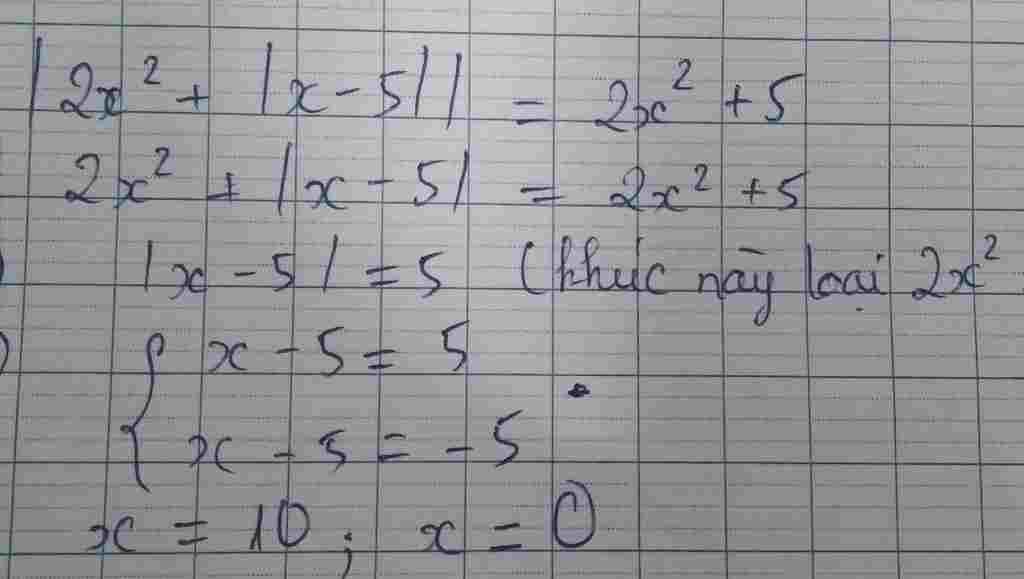 |2x² + |x - 5|| = 2x² + 5
2x² + |x - 5| = 2x² + 5
|x - 5| = 5 (khúc này loại 2x²
{ x - 5 = 5
x - 5 = -5
x = 10 ; x = 0